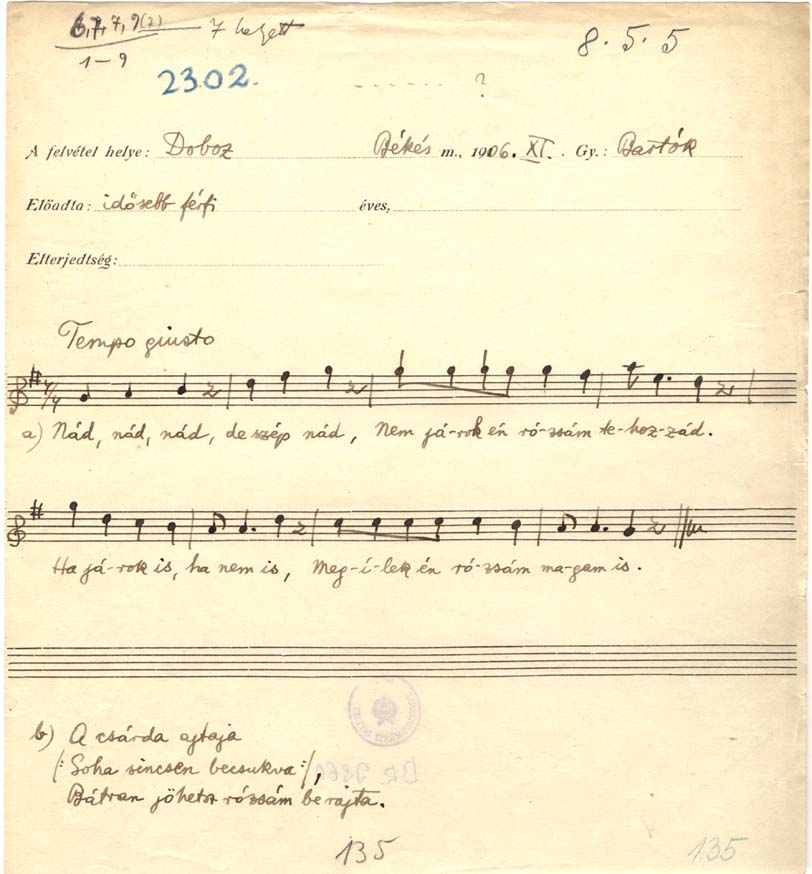 6, 7, 7, 9(2) 7 helyett
1-9
8. 5. 5
2302.
------?
A felvétel helye: Doboz Békés m., 1906. XI. Gy.: Bartók
Előadta: idősebb férfi éves,
Elterjedtség:
Tempo giusto
4/4
a) Nád, nád, nád, de szép nád, Nem já-rok én ró-zsám te-hoz-zád.
Ha já-rok is, ha nem is, Meg-í-lek én ró-zsám ma-gam is.
b) A csárda ajtaja
/: Soha sincsen becsukva :/,
Bátran jöhetsz rózsám be rajta.
135
135